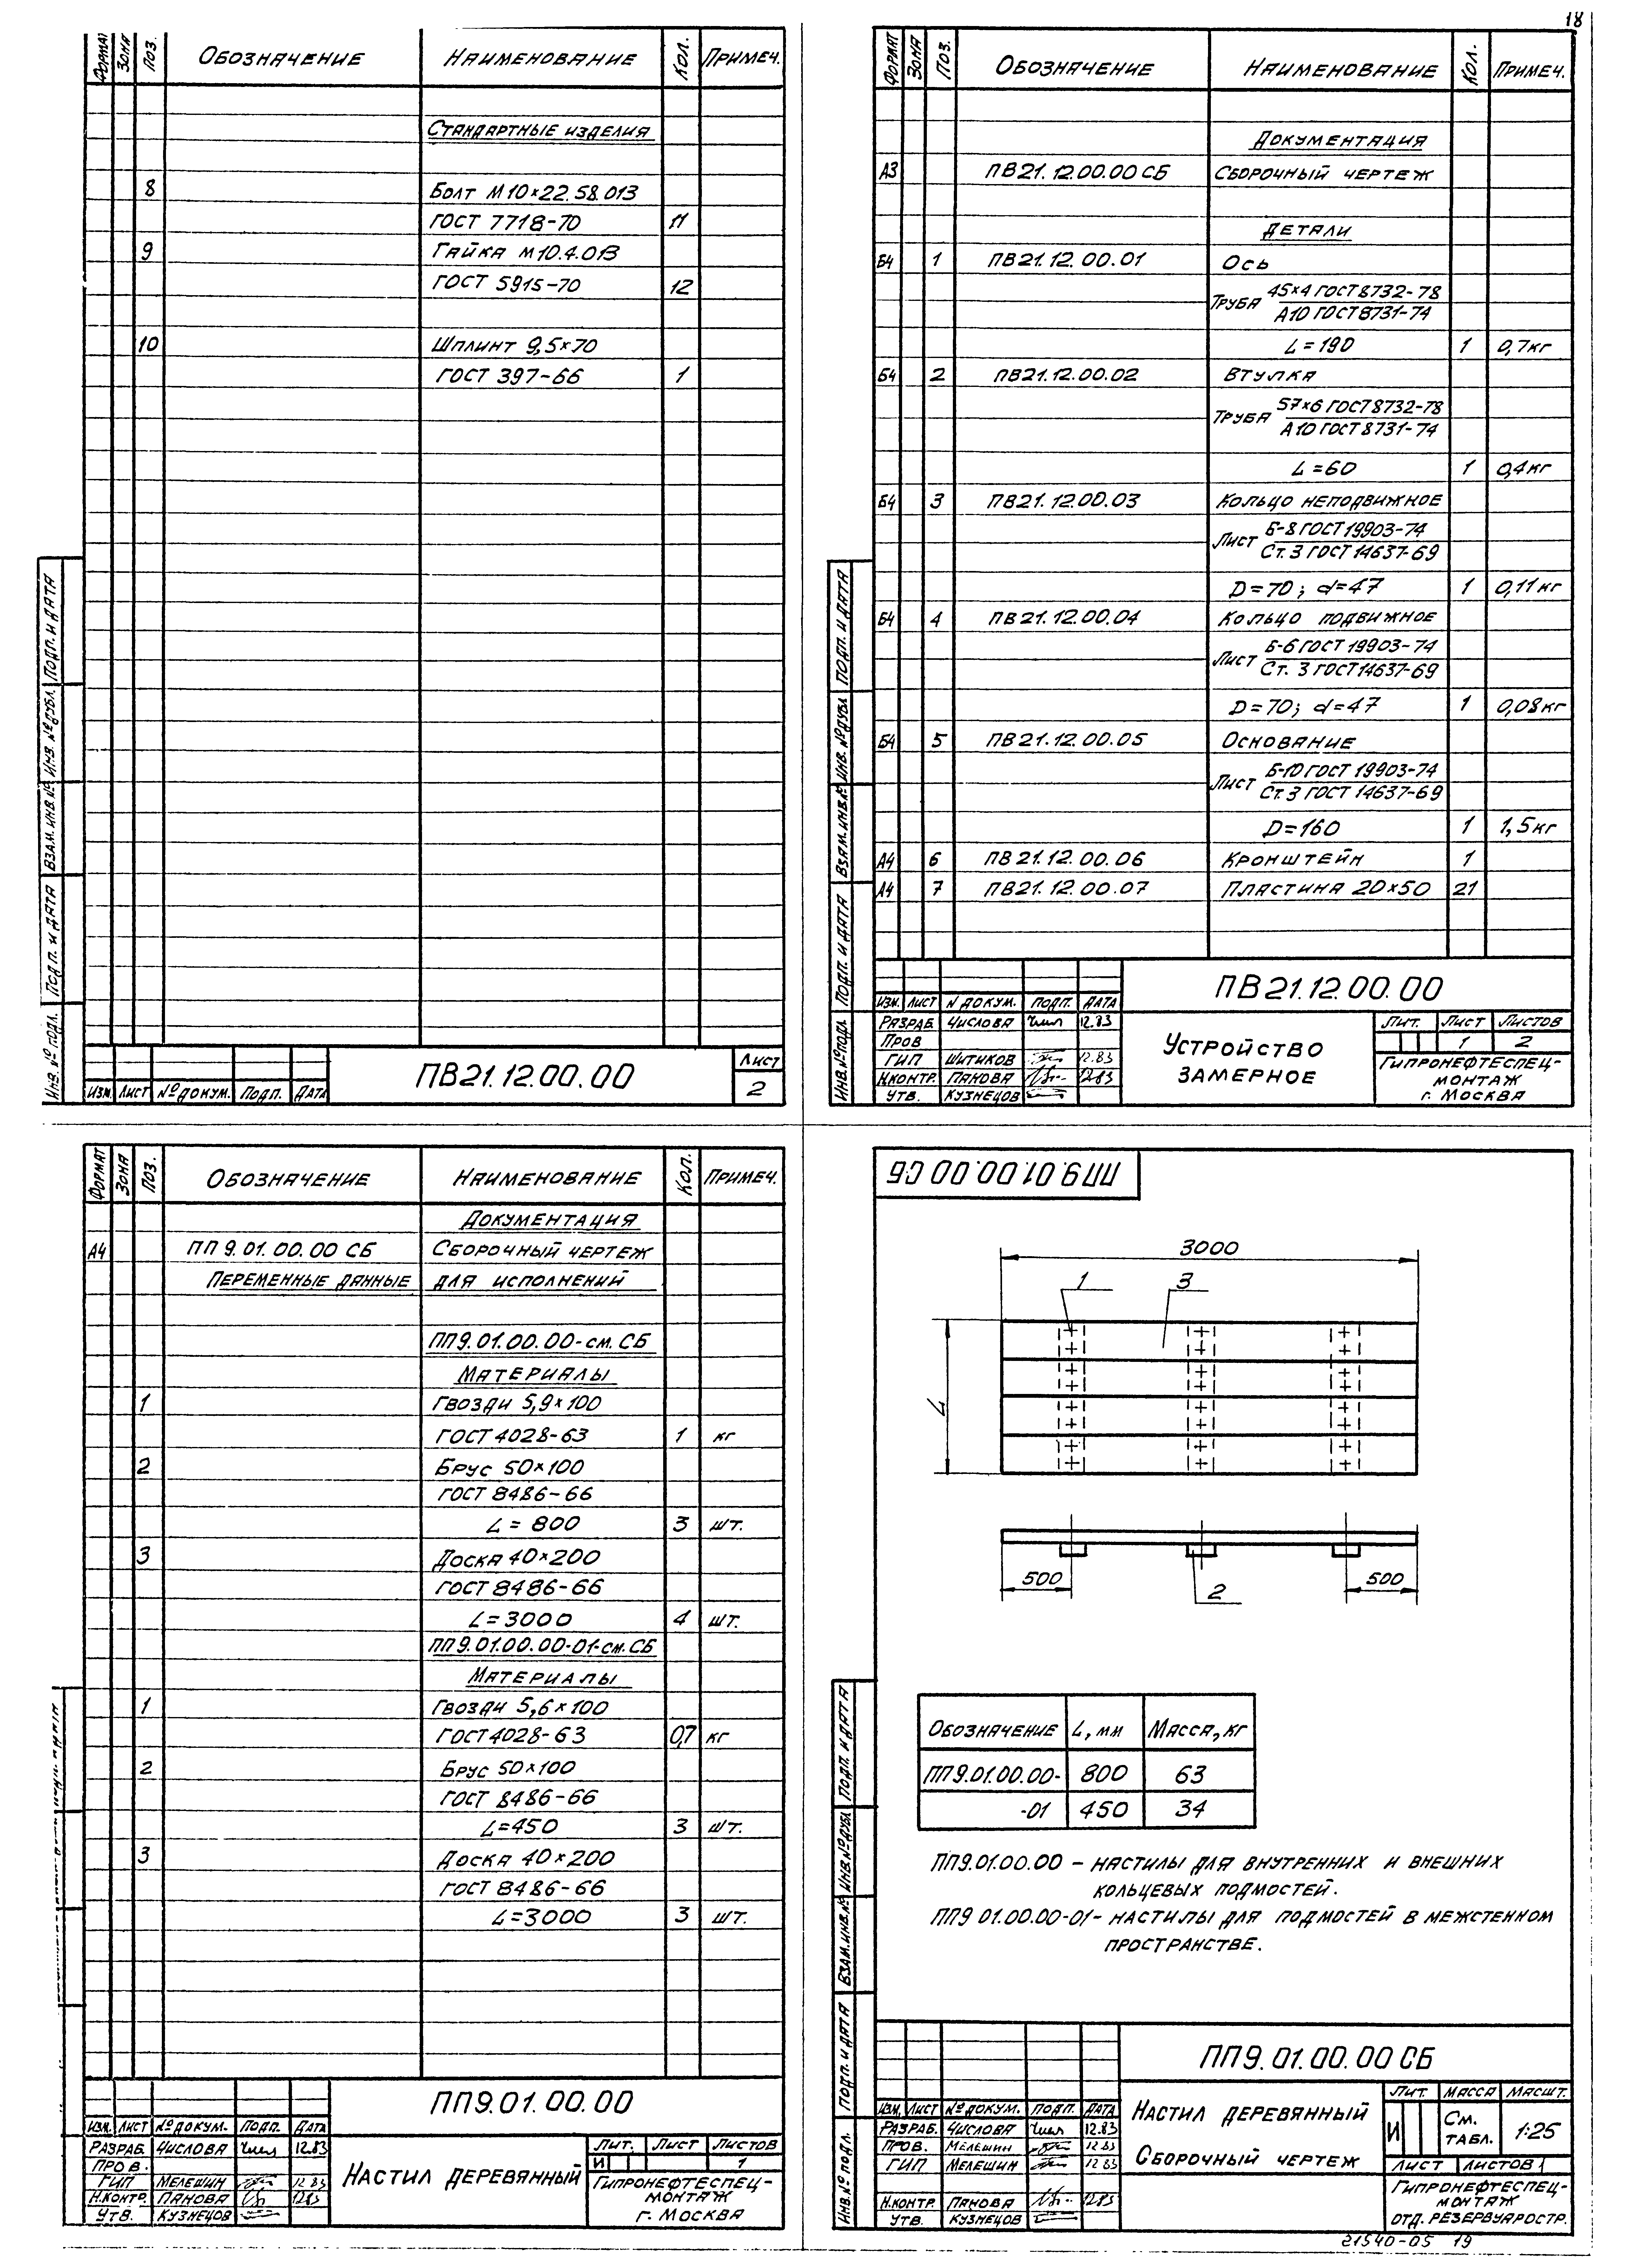 18
ФОРМАТ ЗОНА ПОЗ. ОБОЗНАЧЕНИЕ НАИМЕНОВАНИЕ КОЛ. ПРИМЕЧ.
СТАНДАРТНЫЕ ИЗДЕЛИЯ
8 БОЛТ М10×22.58.013
ГОСТ 7718-70 11
9 ГАЙКА М10.4.013
ГОСТ 5915-70 12
10 ШПЛИНТ 9,5×70
ГОСТ 397-66 1
ПОДП. И ДАТА
ИНВ. № ДУБЛ.
ВЗАМ. ИНВ. №
ПОДП. И ДАТА
ИНВ. № ПОДЛ.
ПВ21.12.00.00 ЛИСТ
2
ИЗМ. ЛИСТ № ДОКУМ. ПОДП. ДАТА
ФОРМАТ ЗОНА ПОЗ. ОБОЗНАЧЕНИЕ НАИМЕНОВАНИЕ КОЛ. ПРИМЕЧ.
ДОКУМЕНТАЦИЯ
А3 ПВ21.12.00.00 СБ СБОРОЧНЫЙ ЧЕРТЕЖ
ДЕТАЛИ
Б4 1 ПВ21.12.00.01 ОСЬ
ТРУБА 45×4 ГОСТ 8732-78
А10 ГОСТ 8731-74
L=190 1 0,7кг
Б4 2 ПВ21.12.00.02 ВТУЛКА
ТРУБА 57×6 ГОСТ 8732-78
А10 ГОСТ 8731-74
L=60 1 0,4кг
Б4 3 ПВ21.12.00.03 КОЛЬЦО НЕПОДВИЖНОЕ
ЛИСТ Б-8 ГОСТ 19903-74
Ст. 3 ГОСТ 14637-69
D=70; d=47 1 0,11кг
Б4 4 ПВ21.12.00.04 КОЛЬЦО ПОДВИЖНОЕ
ЛИСТ Б-6 ГОСТ 19903-74
Ст. 3 ГОСТ 14637-69
D=70; d=47 1 0,08кг
Б4 5 ПВ21.12.00.05 ОСНОВАНИЕ
ЛИСТ Б-10 ГОСТ 19903-74
Ст. 3 ГОСТ 14637-69
D=160 1 1,5кг
А4 6 ПВ21.12.00.06 КРОНШТЕЙН 1
А4 7 ПВ21.12.00.07 ПЛАСТИНА 20×50 21
ПОДП. И ДАТА
ИНВ. № ДУБЛ
ВЗАМ. ИНВ. №
ПОДП. И ДАТА
ИНВ. № ПОДЛ
ПВ21.12.00.00
ИЗМ. ЛИСТ N ДОКУМ. ПОДП. ДАТА
РАЗРАБ. ЧИСЛОВА 12.83
ПРОВ
ГИП ШИТИКОВ 12.83
Н.КОНТР. ПАНОВА 12.83
УТВ. КУЗНЕЦОВ
УСТРОЙСТВО
ЗАМЕРНОЕ
ЛИТ. ЛИСТ ЛИСТОВ
1 2
ГИПРОНЕФТЕСПЕЦ-
МОНТАЖ
г. МОСКВА
ФОРМАТ ЗОНА ПОЗ. ОБОЗНАЧЕНИЕ НАИМЕНОВАНИЕ КОЛ. ПРИМЕЧ.
ДОКУМЕНТАЦИЯ
А4 ПП 9.01.00.00 СБ СБОРОЧНЫЙ ЧЕРТЕЖ
ПЕРЕМЕННЫЕ ДАННЫЕ ДЛЯ ИСПОЛНЕНИЙ
ПП9.01.00.00-см. СБ
МАТЕРИАЛЫ
1 ГВОЗДИ 5,9×100
ГОСТ 4028-63 1 кг
2 БРУС 50×100
ГОСТ 8486-66
L=800 3 шт.
3 ДОСКА 40×200
ГОСТ 8486-66
L=3000 4 шт.
ПП9.01.00.00-01-см. СБ
МАТЕРИАЛЫ
1 ГВОЗДИ 5,6×100
ГОСТ 4028-63 0,7 кг
2 БРУС 50×100
ГОСТ 8486-66
L=450 3 шт.
3 ДОСКА 40×200
ГОСТ 8486-66
L=3000 3 шт.
ПП9.01.00.00
ИЗМ. ЛИСТ № ДОКУМ. ПОДП. ДАТА
РАЗРАБ. ЧИСЛОВА 12.83
ПРОВ.
ГИП МЕЛЕШИН 12 83
Н.КОНТР. ПАНОВА 12.83
УТВ. КУЗНЕЦОВ
НАСТИЛ ДЕРЕВЯННЫЙ
ЛИТ. ЛИСТ ЛИСТОВ
И 1
ГИПРОНЕФТЕСПЕЦ-
МОНТАЖ
г. МОСКВА
ПП9.01.00.00 СБ
3000
1 3
L
500 2 500
ОБОЗНАЧЕНИЕ L, мм МАССА, кг
ПП9.01.00.00- 800 63
-01 450 34
ПП9.01.00.00 – НАСТИЛЫ ДЛЯ ВНУТРЕННИХ И ВНЕШНИХ
КОЛЬЦЕВЫХ ПОДМОСТЕЙ.
ПП9 01.00.00-01- НАСТИЛЫ ДЛЯ ПОДМОСТЕЙ В МЕЖСТЕННОМ
ПРОСТРАНСТВЕ.
ПОДП. И ДАТА
ИНВ. № ДУБЛ
ВЗАМ. ИНВ. №
ПОДП. И ДАТА
ИНВ. № ПОДЛ.
ПП9.01.00.00 СБ
ИЗМ. ЛИСТ № ДОКУМ. ПОДП. ДАТА
РАЗРАБ. ЧИСЛОВА 12.83
ПРОВ. МЕЛЕШИН 12 83
ГИП МЕЛЕШИН 12 83
Н.КОНТР. ПАНОВА 12.83
УТВ. КУЗНЕЦОВ
НАСТИЛ ДЕРЕВЯННЫЙ
СБОРОЧНЫЙ ЧЕРТЕЖ
ЛИТ. МАССА МАСШТ.
И СМ. ТАБЛ. 1:25
ЛИСТ ЛИСТОВ 1
ГИПРОНЕФТЕСПЕЦ-
МОНТАЖ
ОТД. РЕЗЕРВУАРОСТР.
21540-05 19